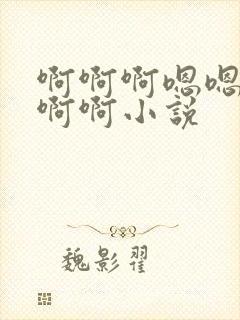 啊啊啊嗯嗯
啊啊小说
魏影翟